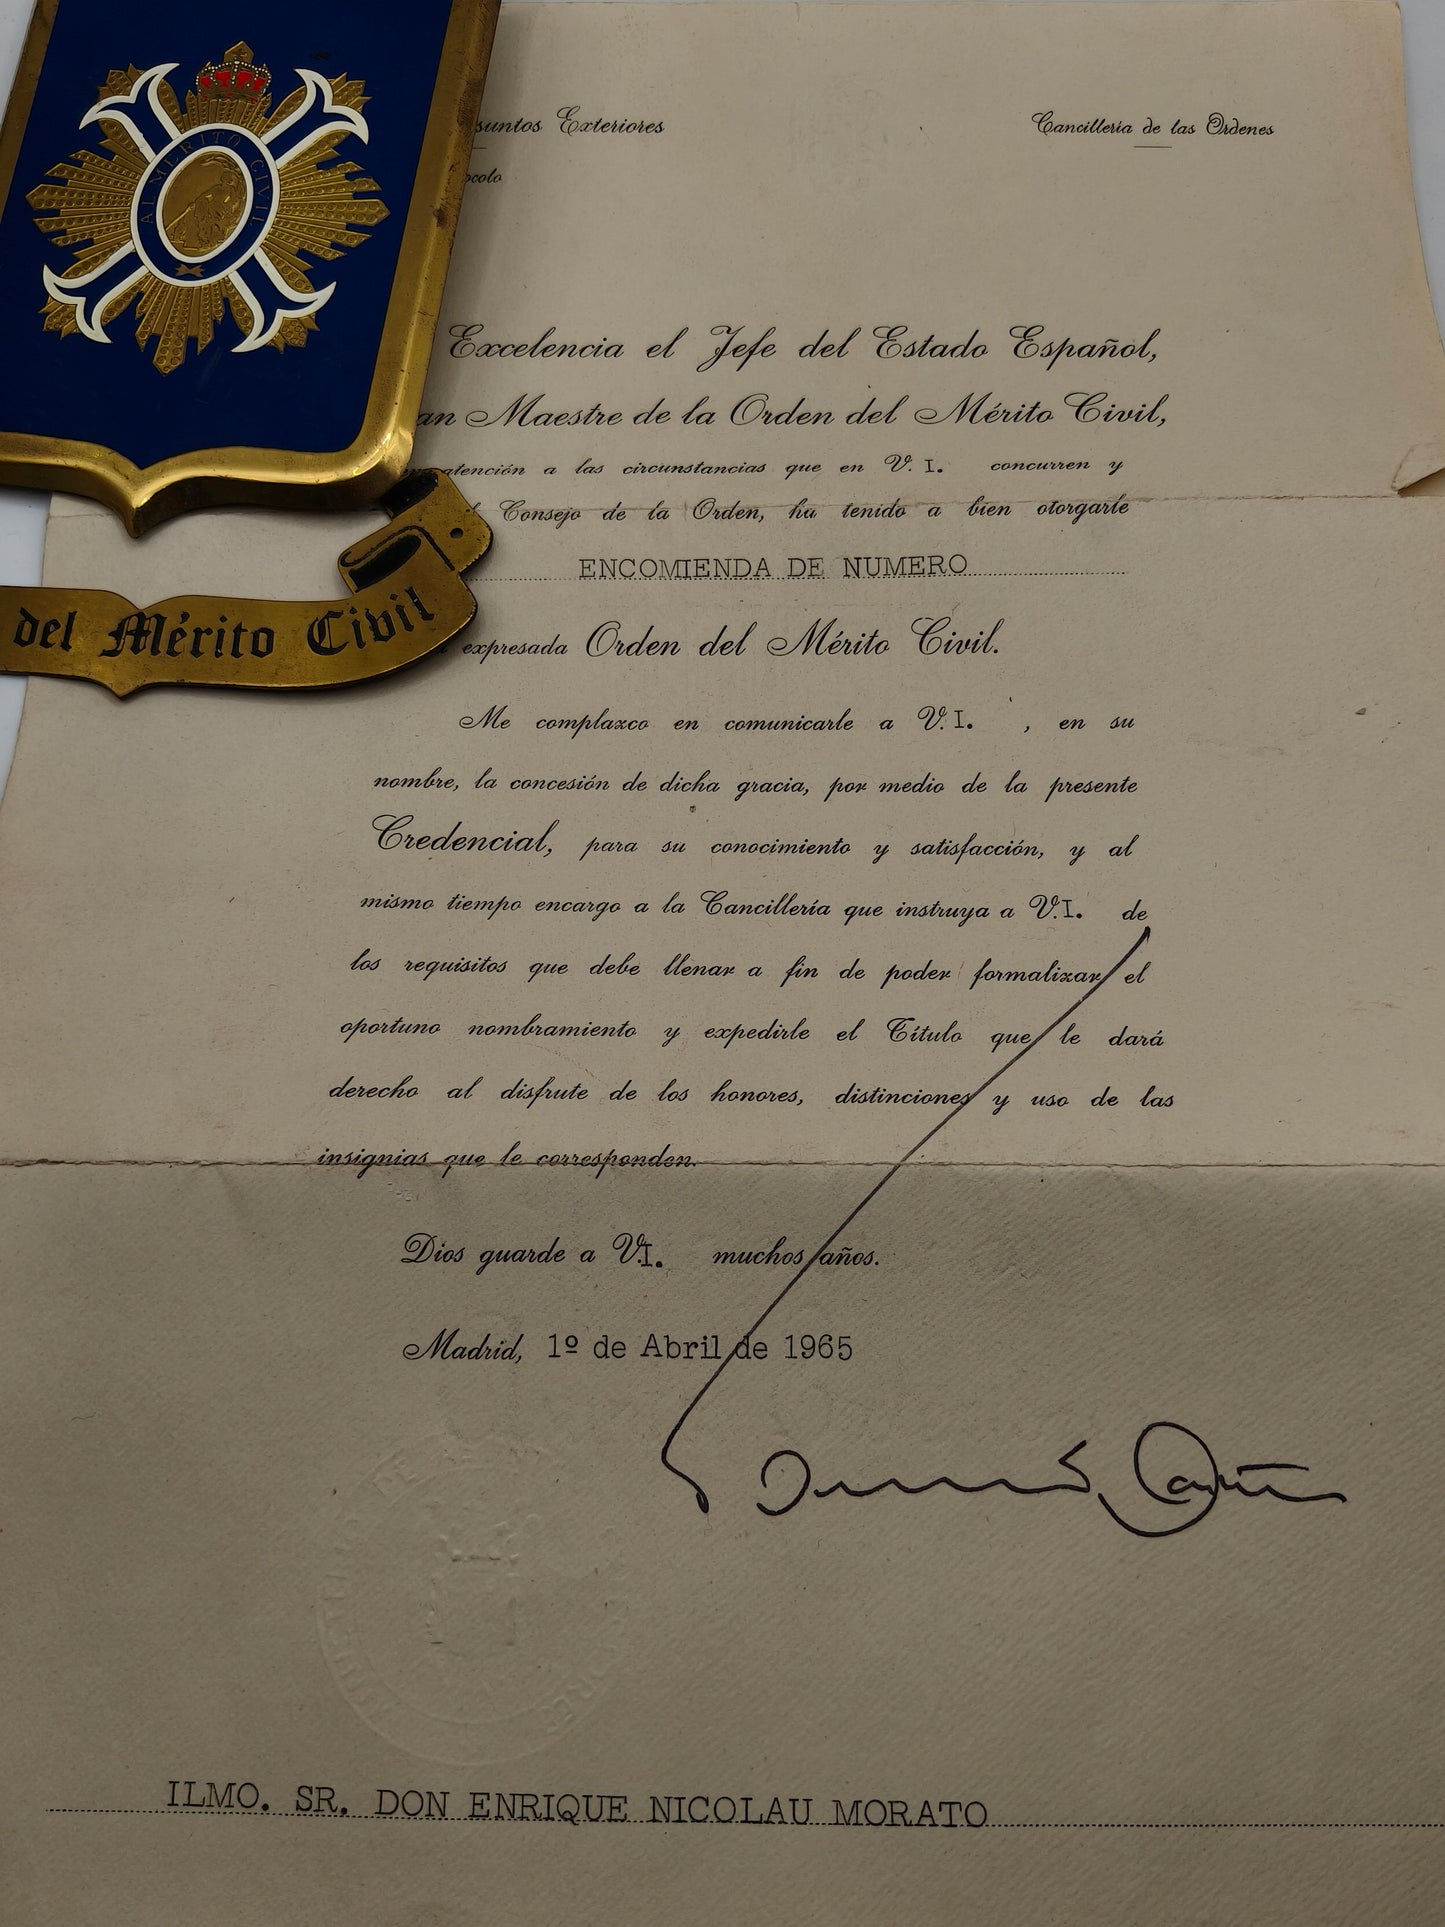 AL MERITO CIVIL
del Mérito Civil
suntos Exteriores
ocolo
Cancillería de las Ordenes
Excelencia el Jefe del Estado Español,
an Maestre de la Orden del Mérito Civil,
atención a las circunstancias que en V. I. concurren y
Consejo de la Orden, ha tenido a bien otorgarle
ENCOMIENDA DE NUMERO
expresada Orden del Mérito Civil.
Me complazco en comunicarle a V. I. , en su
nombre, la concesión de dicha gracia, por medio de la presente
Credencial, para su conocimiento y satisfacción, y al
mismo tiempo encargo a la Cancillería que instruya a V.I. de
los requisitos que debe llenar a fin de poder formalizar el
oportuno nombramiento y expedirle el Título que le dará
derecho al disfrute de los honores, distinciones y uso de las
insignias que le corresponden.
Dios guarde a V.I. muchos años.
Madrid, 1º de Abril de 1965
ILMO. SR. DON ENRIQUE NICOLAU MORATO